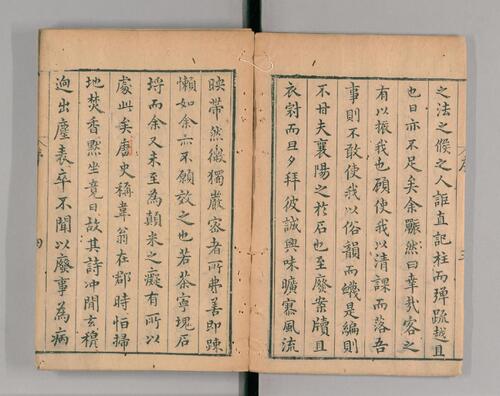 之法之候之人詎直記柱而殫蹏越且
也日亦不足矣余囅然曰幸哉客之
有以振我也顧使我以清課而落吾
事則不敢使我以俗韻而蟣是編則
不甘夫襄陽之於石也至廢案牘且
衣冠而旦夕拜彼誠興味曠寡風流
映帶然微獨嚴客者所弗善即踈
懶如余亦不願效之也若茶寧瑰石
埒而余又未至為顛米之癡有所以
處此矣唐史稱韋翁在郡時怕掃
地焚香黙坐竟日故其詩冲閒玄穆
逈出塵表卒不聞以廢事為病
三
四